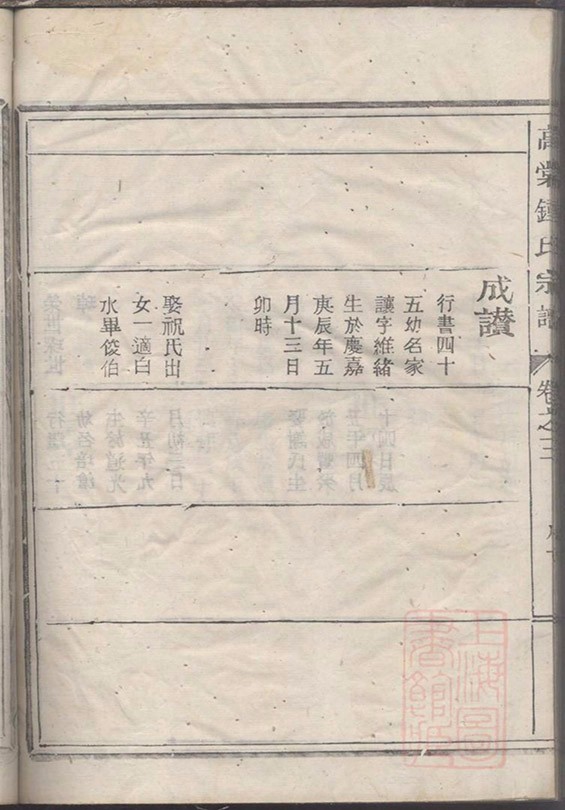 高棠鍾氏宗譜
卷之三
成讃
行書四十
五幼名家
讓字維緒
生於慶嘉
庚辰年五
月十三日
卯時
娶祝氏出
女一適白
水畢俊伯
上海圖
書館藏